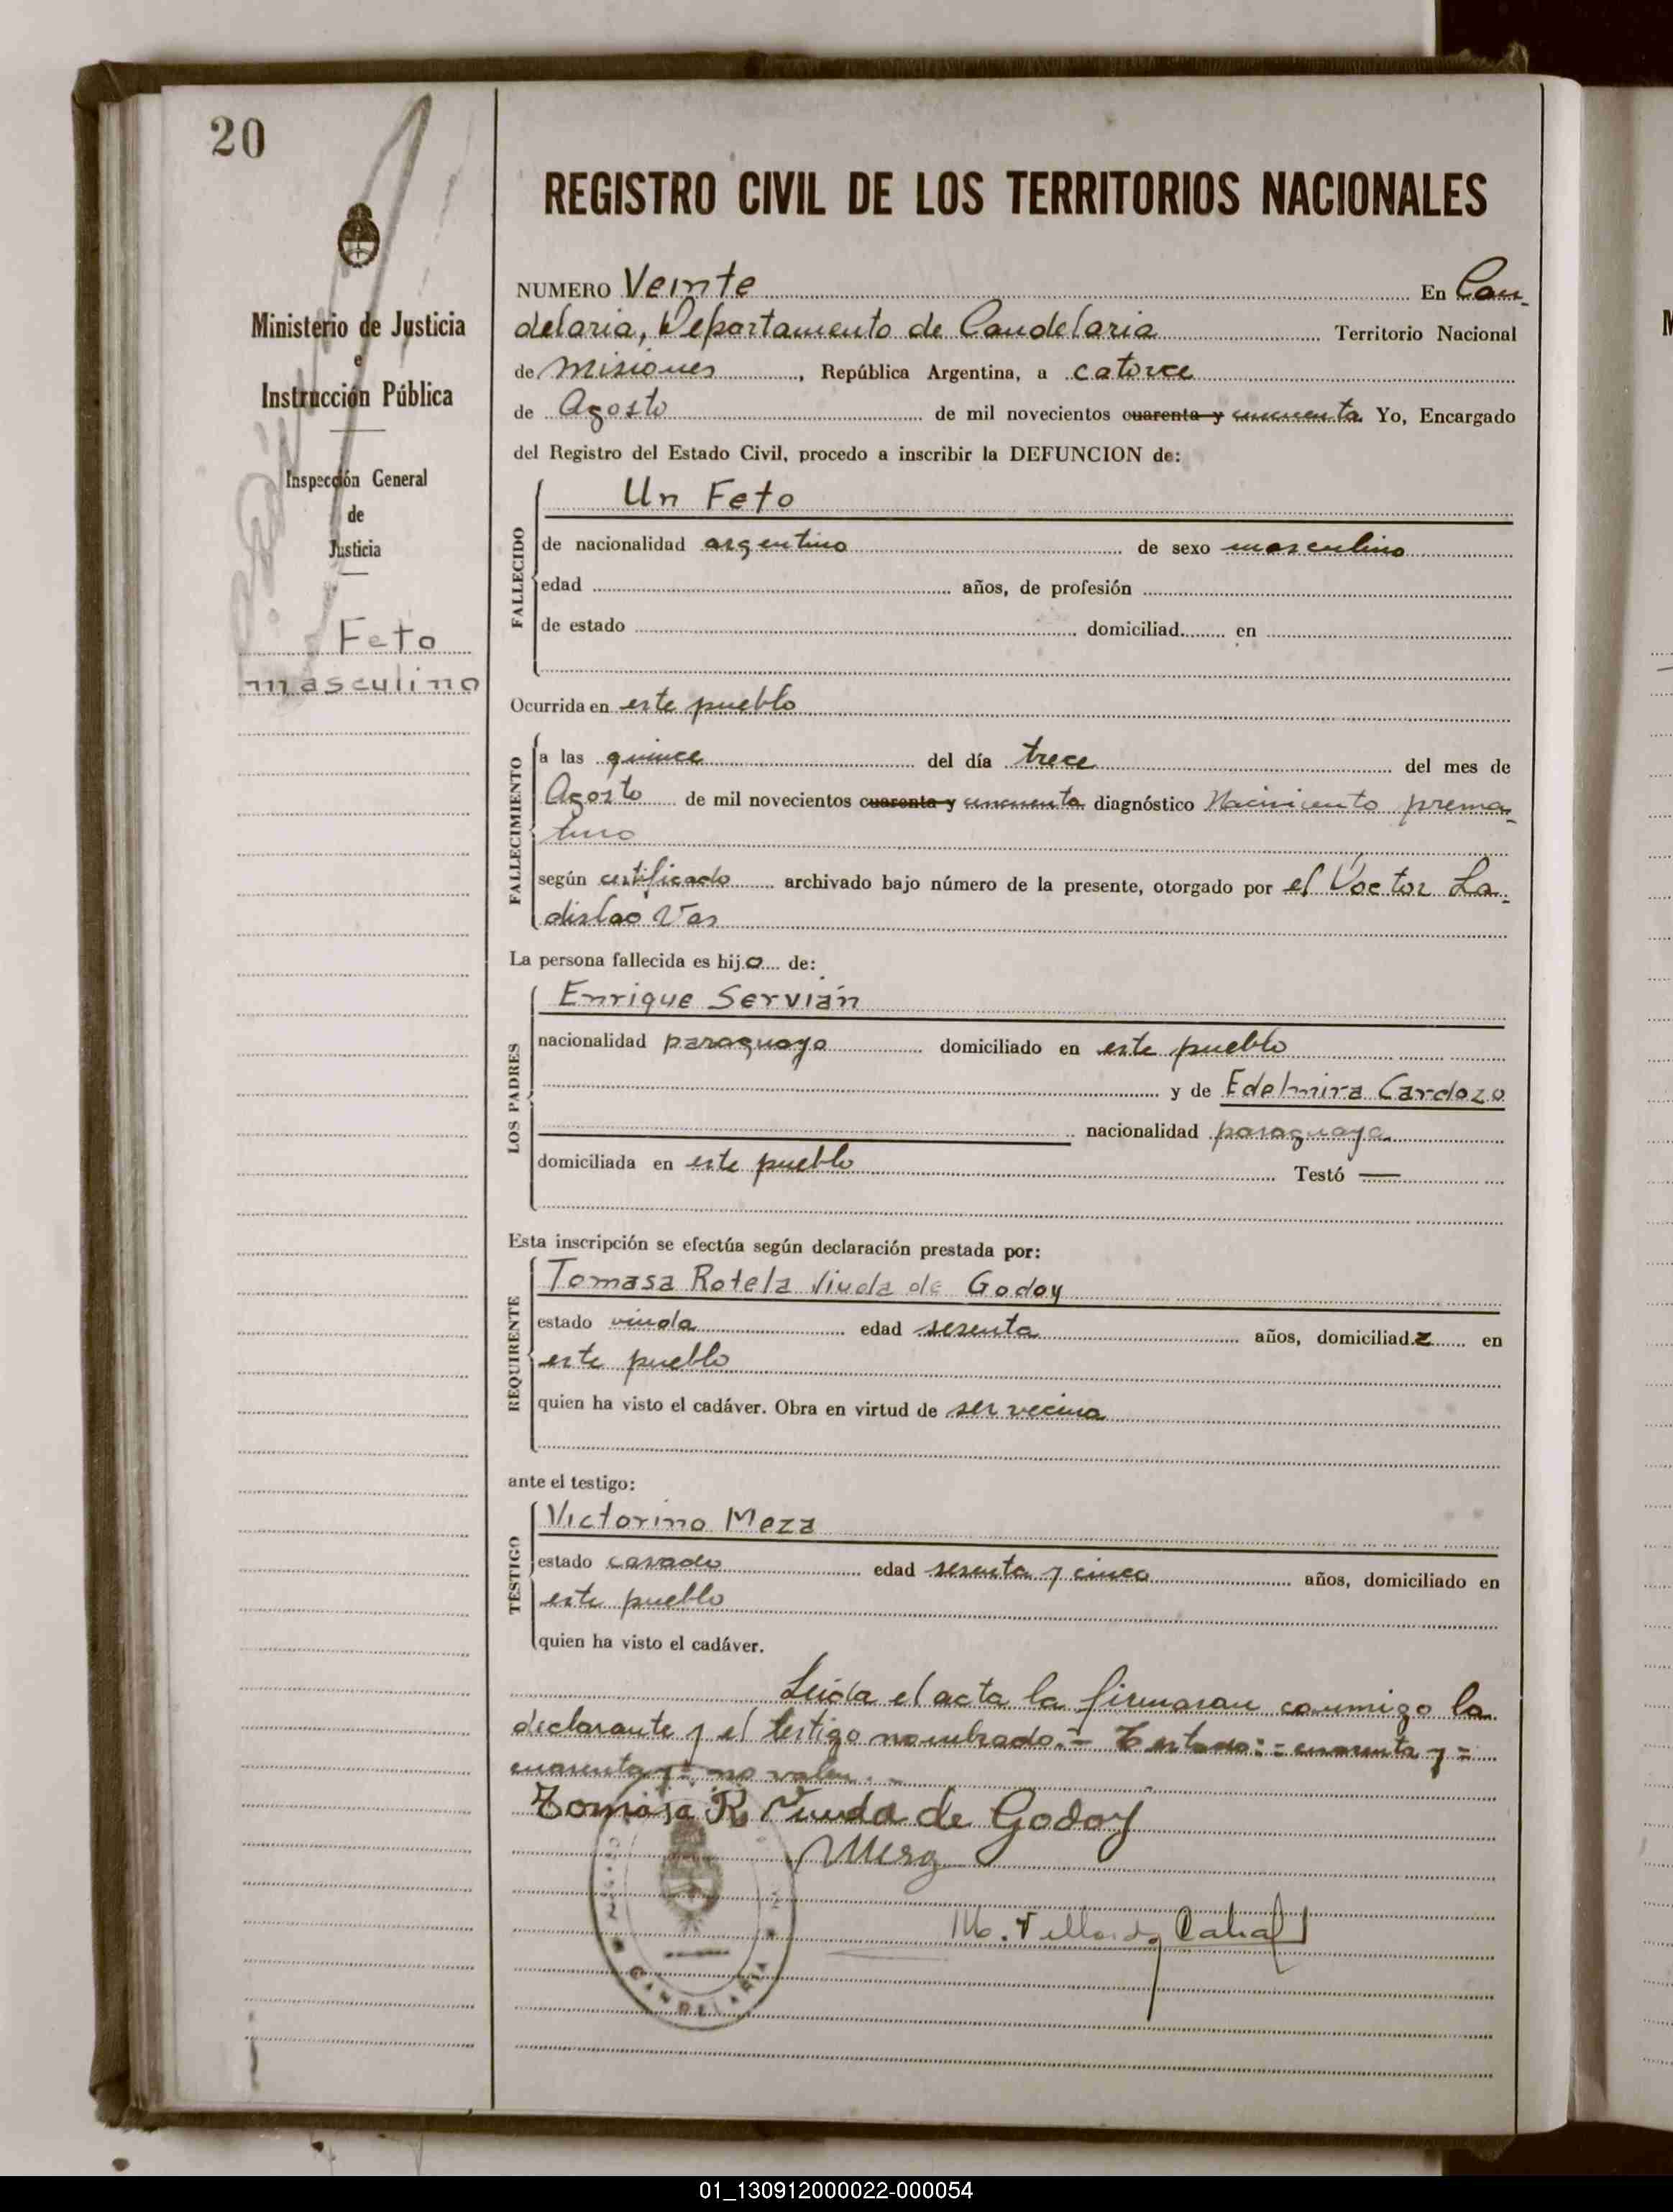 20
Ministerio de Justicia
e
Instrucción Pública
Inspección General
de
Justicia
Feto
masculino
REGISTRO CIVIL DE LOS TERRITORIOS NACIONALES
NUMERO Veinte En Can-
delaria, Departamento de Candelaria Territorio Nacional
de Misiones, República Argentina, a catorce
de Agosto de mil novecientos cuarenta y cincuenta Yo, Encargado
del Registro del Estado Civil, procedo a inscribir la DEFUNCION de:
FALLECIDO
Un Feto
de nacionalidad argentino de sexo masculino
edad años, de profesión
de estado domiciliad en
Ocurrida en este pueblo
FALLECIMIENTO
a las quince del día trece del mes de
Agosto de mil novecientos cuarenta y cincuenta diagnóstico Nacimiento prema-
turo
según certificado archivado bajo número de la presente, otorgado por el Doctor La-
dislao Vas
La persona fallecida es hijo de:
LOS PADRES
Enrique Servián
nacionalidad paraguayo domiciliado en este pueblo
y de Edelmira Cardozo
nacionalidad paraguaya
domiciliada en este pueblo Testó —
Esta inscripción se efectúa según declaración prestada por:
REQUIRENTE
Tomasa Rotela Viuda de Godoy
estado viuda edad sesenta años, domiciliada en
este pueblo
quien ha visto el cadáver. Obra en virtud de ser vecina
ante el testigo:
TESTIGO
Victorino Meza
estado casado edad sesenta y cinco años, domiciliado en
este pueblo
quien ha visto el cadáver.
Leída el acta la firmaron conmigo la
declarante y el testigo nombrado.= Testado:= cuarenta y =
cuarenta y = no valen.-
Tomasa R. Viuda de Godoy
VMeza
Cabral
CANDELARIA
01_130912000022-000054